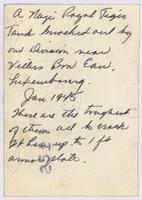 A Nazi Royal Tiger
Tank knocked out by
our Division near
Villers Bon Eau,
Luxembourg.
Jan 1945
These are the toughest
of them all to crack
It has up to 1 ft
armor plate.